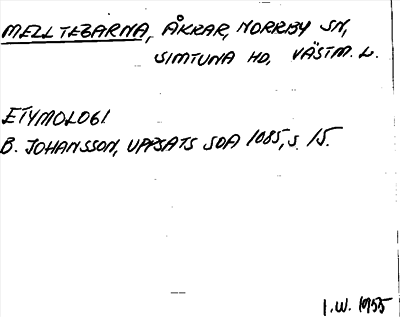 MELLTEGARNA, ÅKRAR, NORRBY SN,
SIMTUNA HD, VÄSTM. L.
ETYMOLOGI
B. JOHANSSON, UPPSATS SOA 1085, S. 15.
I.W. 1955